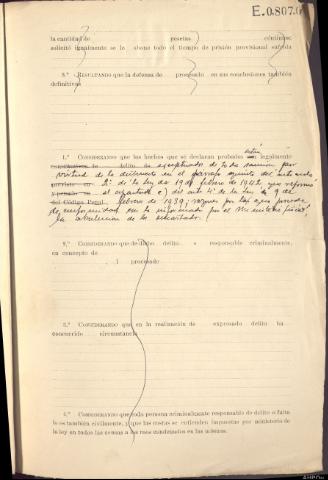 E.0.807.0
la cantidad de pesetas céntimos;
solicitó igualmente se le abone todo el tiempo de prisión provisional sufrida
8.º RESULTANDO que la defensa de procesado en sus conclusiones también
definitivas
1.º CONSIDERANDO que los hechos que se declaran probados están legalmente
exceptuados de toda sanción por
virtud de lo dispuesto en el párrafo
2º de la Ley de 19 de febrero de 1942 que reformó
el apartado c) del artº 4º de la Ley de 9 de
del Código Penal febrero de 1939; razones por las que procede
de conformidad con lo informado por el Ministerio fiscal
la absolución de los encartados.
2.º CONSIDERANDO que de dicho delito responsable criminalmente,
en concepto de
procesado
3.º CONSIDERANDO que en la realización de expresado delito ha
concurrido circunstancia
4.º CONSIDERANDO que toda persona criminalmente responsable de delito o falta
lo es también civilmente, y que las costas se entienden impuestas por ministerio de
la ley en todas las causas a los reos condenados en las mismas.